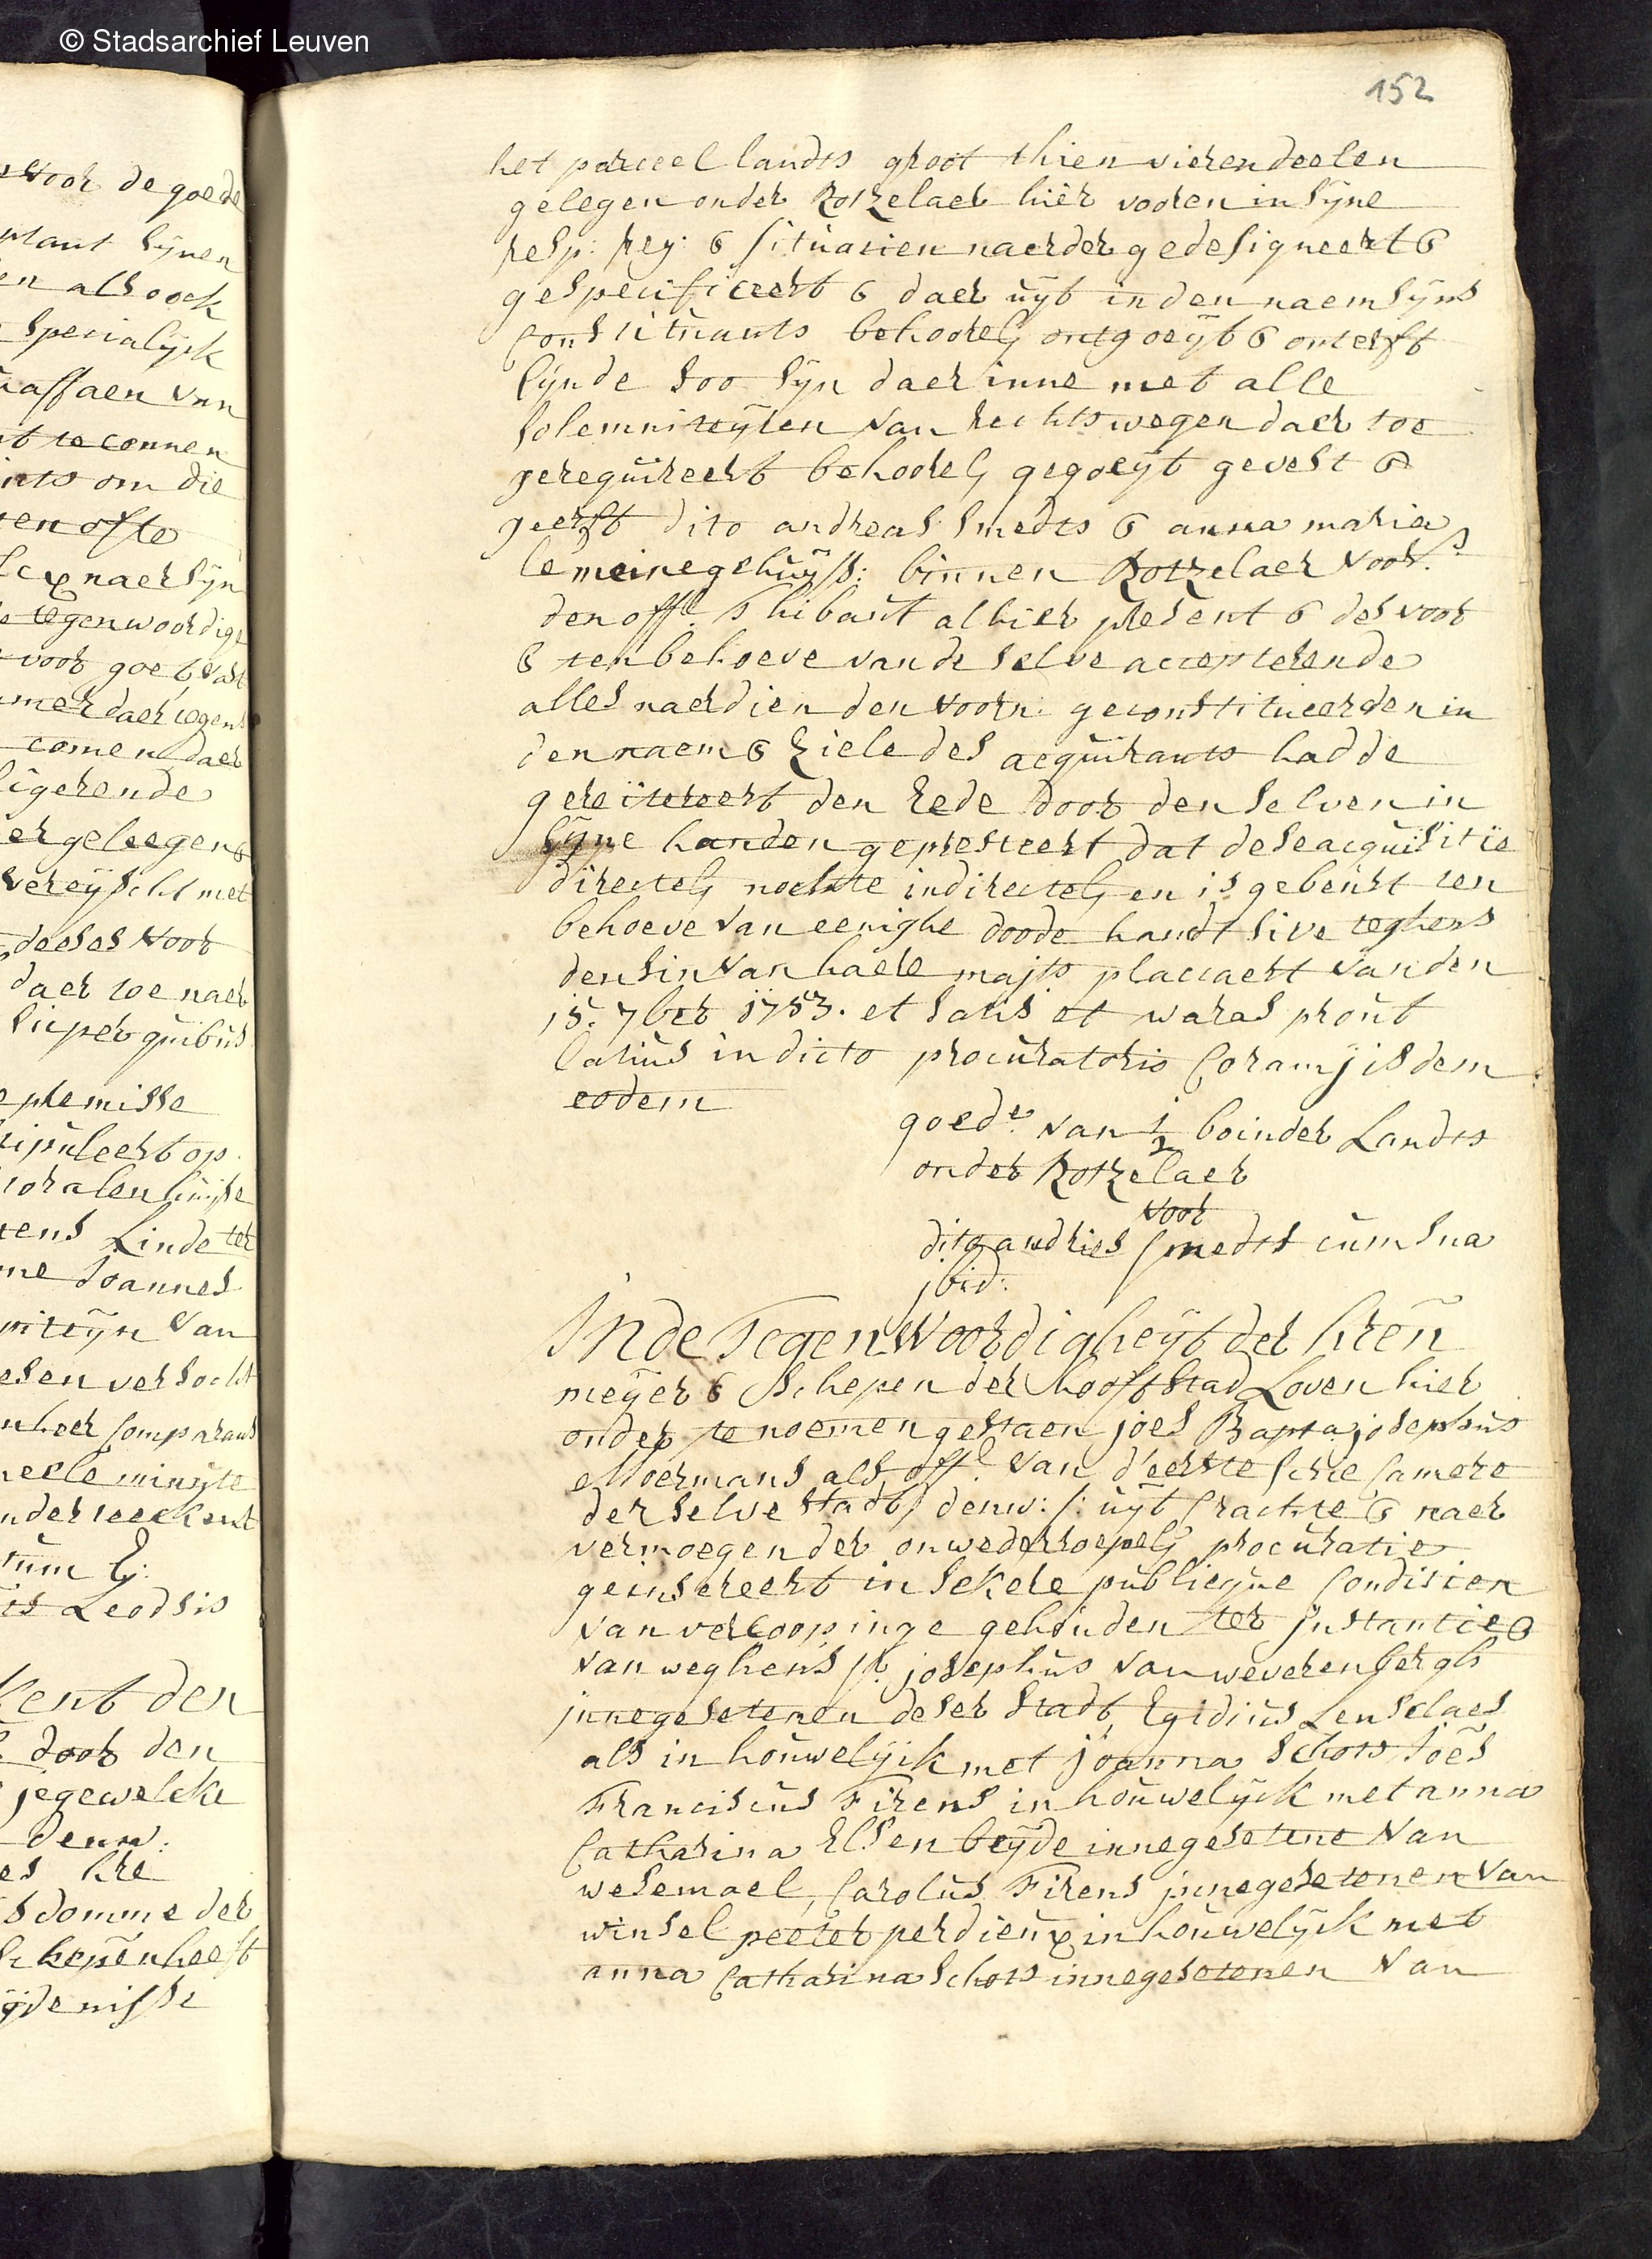 © Stadsarchief Leuven
152
voor de goede
plant sijnen
en als oock
specialijck
te connen
om die
en ofte
naer sijn
tegenwoordige
voor goet vast
daer tegens
comen daer
geleegen
vereijscht met
deeses voor
daer toe naer
super quibus
premisse
stipuleert op
Linde ter
Joannes
van
versocht
comparant
minute
Leodsis
kent den
door den
jegewelcke
denw:
hre
domme der
schepen heeft
het parceel landts groot thien vierendeelen
gelegen onder Rotzelaer hier voren in sijne
resp: reg: & situatien naerder gedesigneert &
gespecificeert & daer uijt in den naem sijns
Constituants behoorelij ontgoeijt & onterft
sijnde soo sijn daer inne met alle
solemniteijten van rechts wegen daer toe
gerequireert behoorelij gegoeijt gevest &
geerft dito andreas smedts & anna maria
lemeine gehuijss: binnen Rotzelaer voors
den offl. Thibaut alhier present & des voor
& ten behoeve van de selve accepterende
alles naer dien den voorn: geconstitueerden in
den naem & ziele des acquirants hadde
gereitereert den eede door den selven in
sijne handen gepresteert dat dese acquisitie
directelij nochte indirectelij en is gebeurt ten
behoeve van eenighe doode handt sive teghens
den sin van haere majts placcaert van den
15. 7ber 1753. et satis et waras prout
latius in dicto procuratorio Coram ijisdem
eodem
goede van 1/2 boinder Landts
onder Rotzelaer
voor
dito andries smedts cum sua
ibid:
In de Tegenwoordigheijt der hren
meijer & schepen der hooftstad Loven hier
onder te noemen gestaen joes Bapta josephus
Moermans als offl. van d'eerste secre Camere
der selve stadt, denw: /: uijt crachte & naer
vermoegen der onwederroepelij procuratie
geinsereert in sekere publicque Conditien
van vercoopinge gehouden ter instantie &
van weghens sr. josephus van weverenbergh
innegesetenen deser stadt, Egidius Lenselaes
als in houwelijck met joanna Schots, Joes
Franciscus Firens in houwelijck met anna
Catharina Elsen beijde innegesetene van
wesemael, Carolus Firens innegesetenen van
winsel peeter perdieux in houwelijck met
anna Catharina Schots innegesetenen van